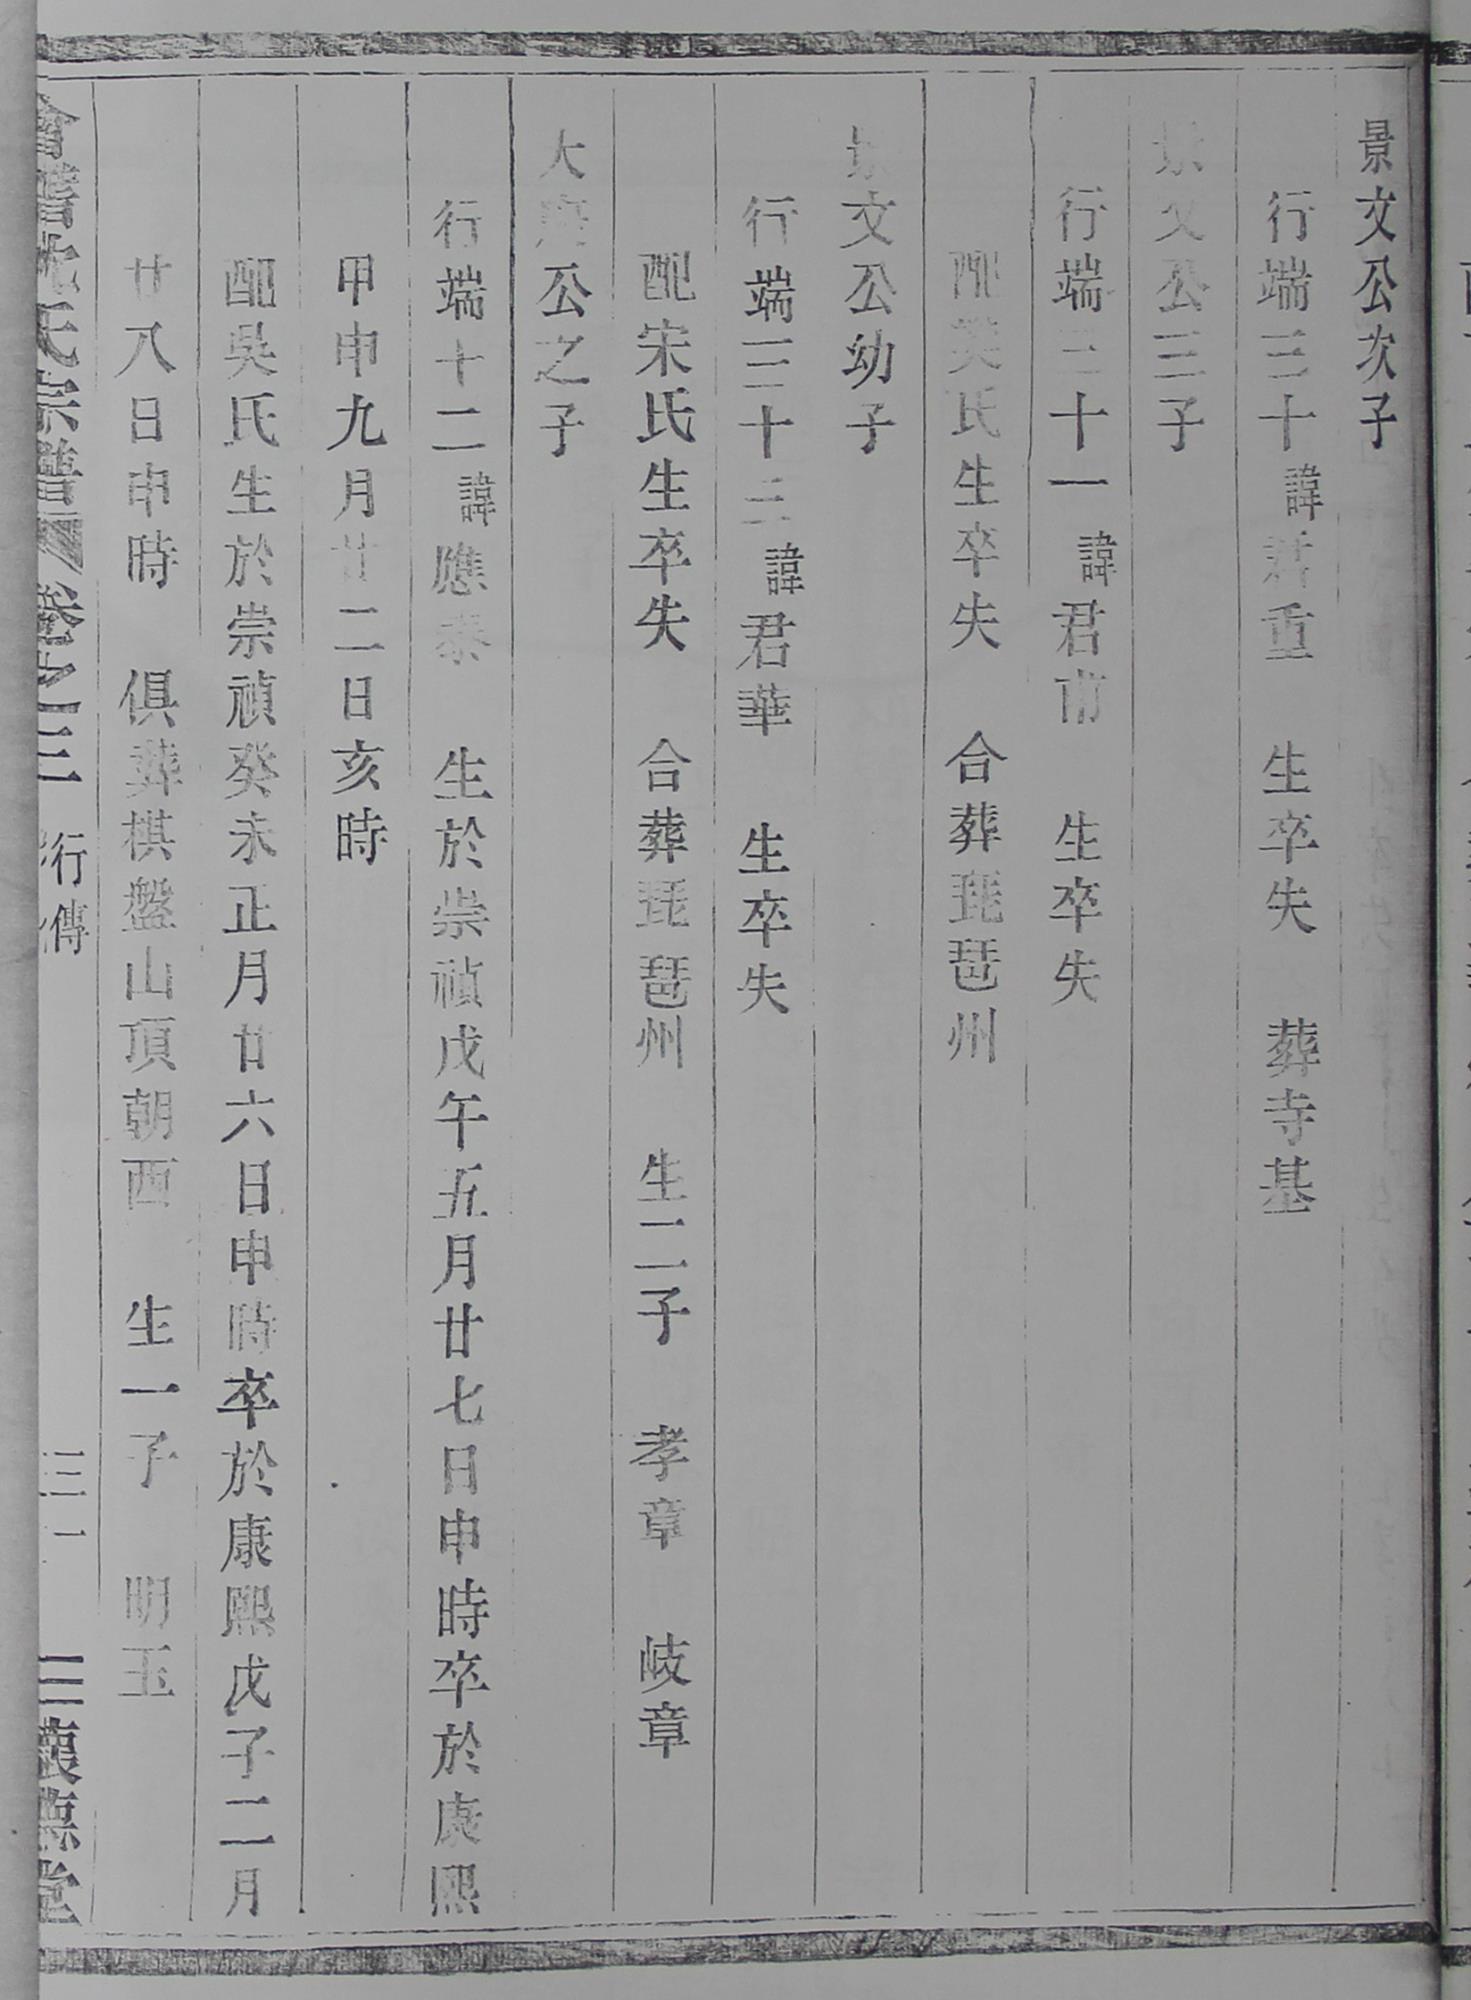 景文公次子
行端三十諱君重　生卒失　葬寺基
景文公三子
行端三十一諱君甫　生卒失
配吳氏生卒失　合葬琵琶州
景文公幼子
行端三十二諱君華　生卒失
配宋氏生卒失　合葬琵琶州　生二子　孝章　岐章
大公之子
行端十二諱應泰　生於崇禎戊午五月廿七日申時卒於康熙
甲申九月廿二日亥時
配吳氏生於崇禎癸未正月廿六日申時卒於康熙戊子二月
廿八日申時　俱葬棋盤山頂朝西　生一子　明玉
會稽沈氏宗譜　卷之三　行傳　三十一　三懷堂